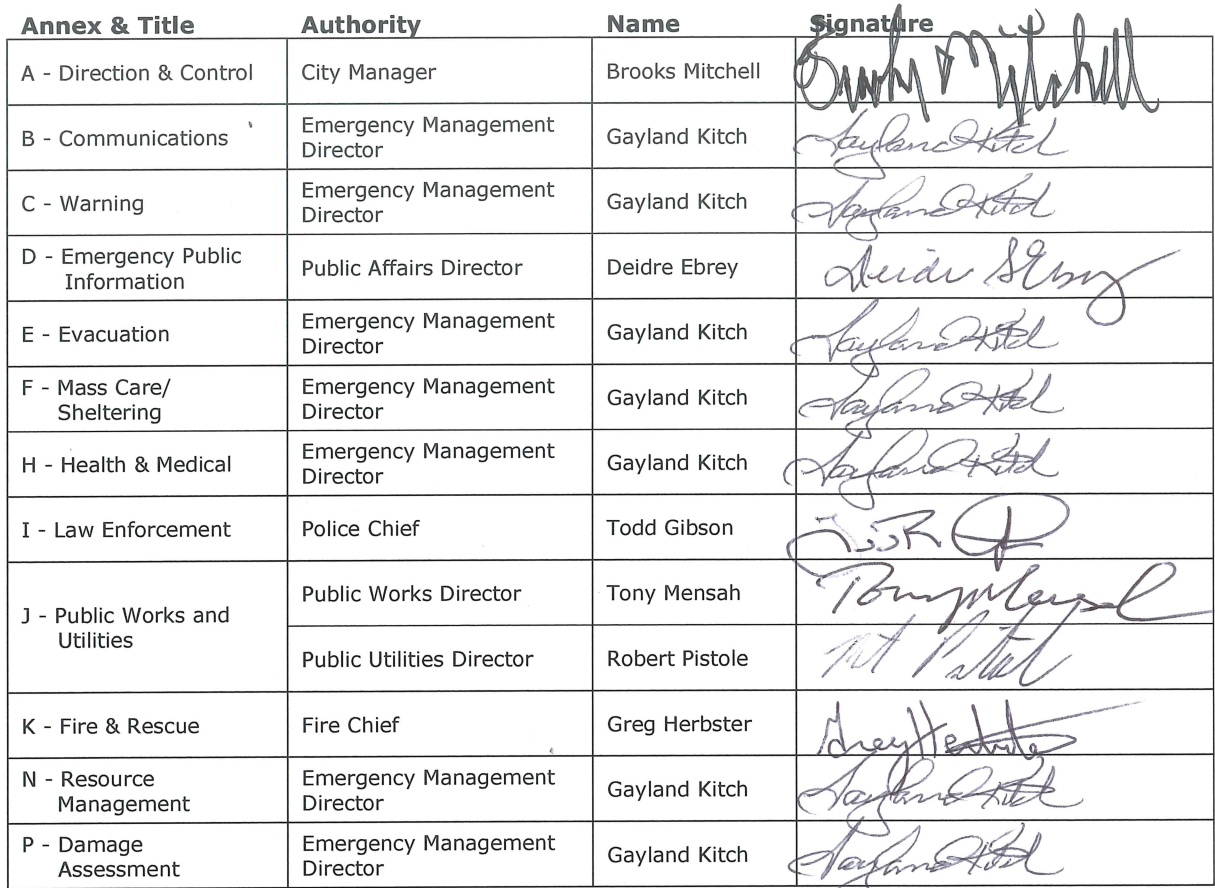 Annex & Title Authority Name Signature
A - Direction & Control City Manager Brooks Mitchell Brooks Mitchell
B - Communications Emergency Management Director Gayland Kitch Gayland Kitch
C - Warning Emergency Management Director Gayland Kitch Gayland Kitch
D - Emergency Public Information Public Affairs Director Deidre Ebrey Deidre Ebrey
E - Evacuation Emergency Management Director Gayland Kitch Gayland Kitch
F - Mass Care/ Sheltering Emergency Management Director Gayland Kitch Gayland Kitch
H - Health & Medical Emergency Management Director Gayland Kitch Gayland Kitch
I - Law Enforcement Police Chief Todd Gibson
J - Public Works and Utilities Public Works Director Tony Mensah Tony Mensah
Public Utilities Director Robert Pistole
K - Fire & Rescue Fire Chief Greg Herbster Greg Herbster
N - Resource Management Emergency Management Director Gayland Kitch Gayland Kitch
P - Damage Assessment Emergency Management Director Gayland Kitch Gayland Kitch